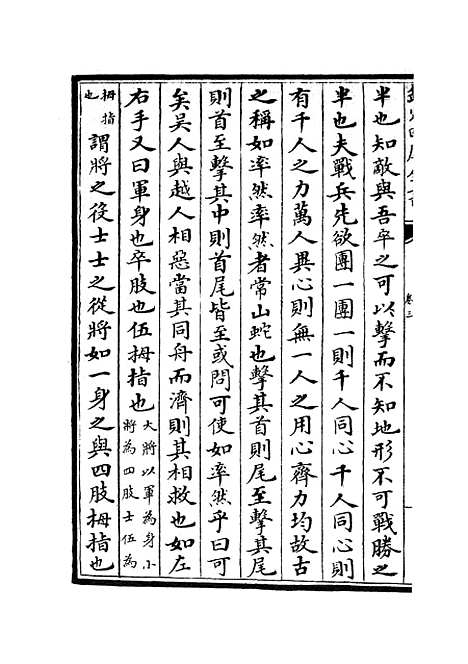 卷三
半也知敵與吾卒之可以擊而不知地形不可戰勝之
半也夫戰兵先欲團一團一則千人同心千人同心則
有千人之力萬人異心則無一人之用心齊力均故古
之稱如率然率然者常山蛇也擊其首則尾至擊其尾
則首至擊其中則首尾皆至或問可使如率然乎曰可
矣吳人與越人相惡當其同舟而濟則其相救也如左
右手又曰軍身也卒肢也伍拇指也大將以軍為身小將為四肢士伍為
拇指也謂將之役士士之從將如一身之與四肢拇指也